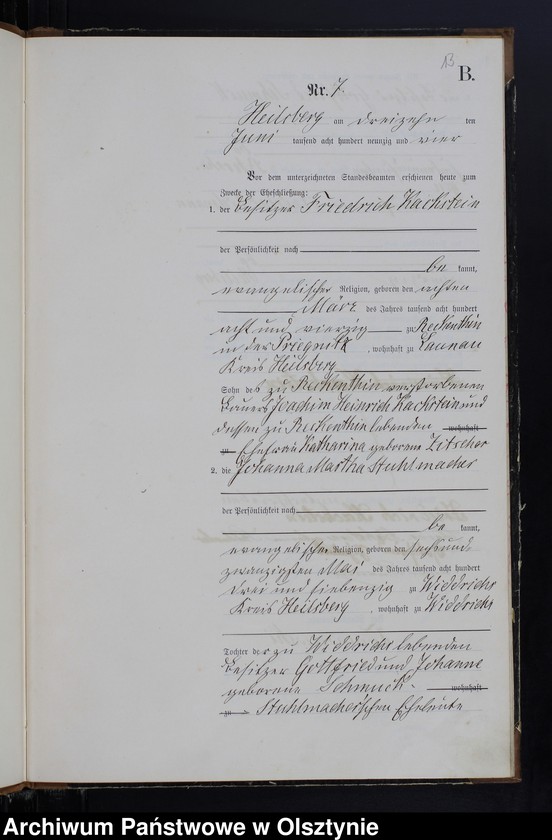 13
B.
Nr. 7.
Heilsberg am dreizehn ten
Juni tausend acht hundert neunzig und vier
Vor dem unterzeichneten Standesbeamten erschienen heute zum
Zwecke der Eheschließung:
1. der Besitzer Friedrich Kackstein
der Persönlichkeit nach
be kannt,
evangelischer Religion, geboren den achten
März des Jahres tausend acht hundert
acht und vierzig zu Reckenthin
in der Priegnitz, wohnhaft zu Launau
Kreis Heilsberg
Sohn des zu Reckenthin verstorbenen
Bauers Joachim Heinrich Kackstein und
dessen zu Reckenthin lebenden wohnhaft
zu Ehefrau Katharina geborene Zitscher
2. die Johanna Martha Stuhlmacher
der Persönlichkeit nach
be kannt,
evangelischer Religion, geboren den sechsund
zwanzigsten Mai des Jahres tausend acht hundert
drei und siebenzig zu Widdrichs
Kreis Heilsberg, wohnhaft zu Widdrichs
Tochter der zu Widdrichs lebenden
Besitzer Gottfried und Johanne
geborene Schmuck- wohnhaft
zu Stuhlmacher'schen Eheleute
Archiwum Państwowe w Olsztynie